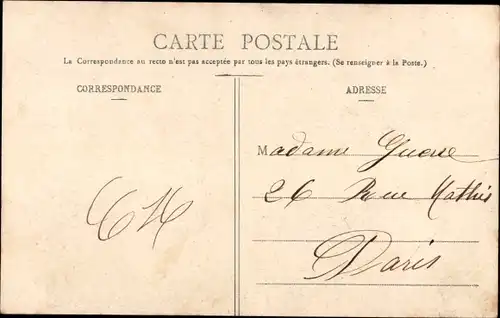 CARTE POSTALE
La Correspondance au recto n'est pas acceptée par tous les pays étrangers. (Se renseigner à la Poste.)
CORRESPONDANCE
ADRESSE
Madame
26 Rue Mathis
Paris